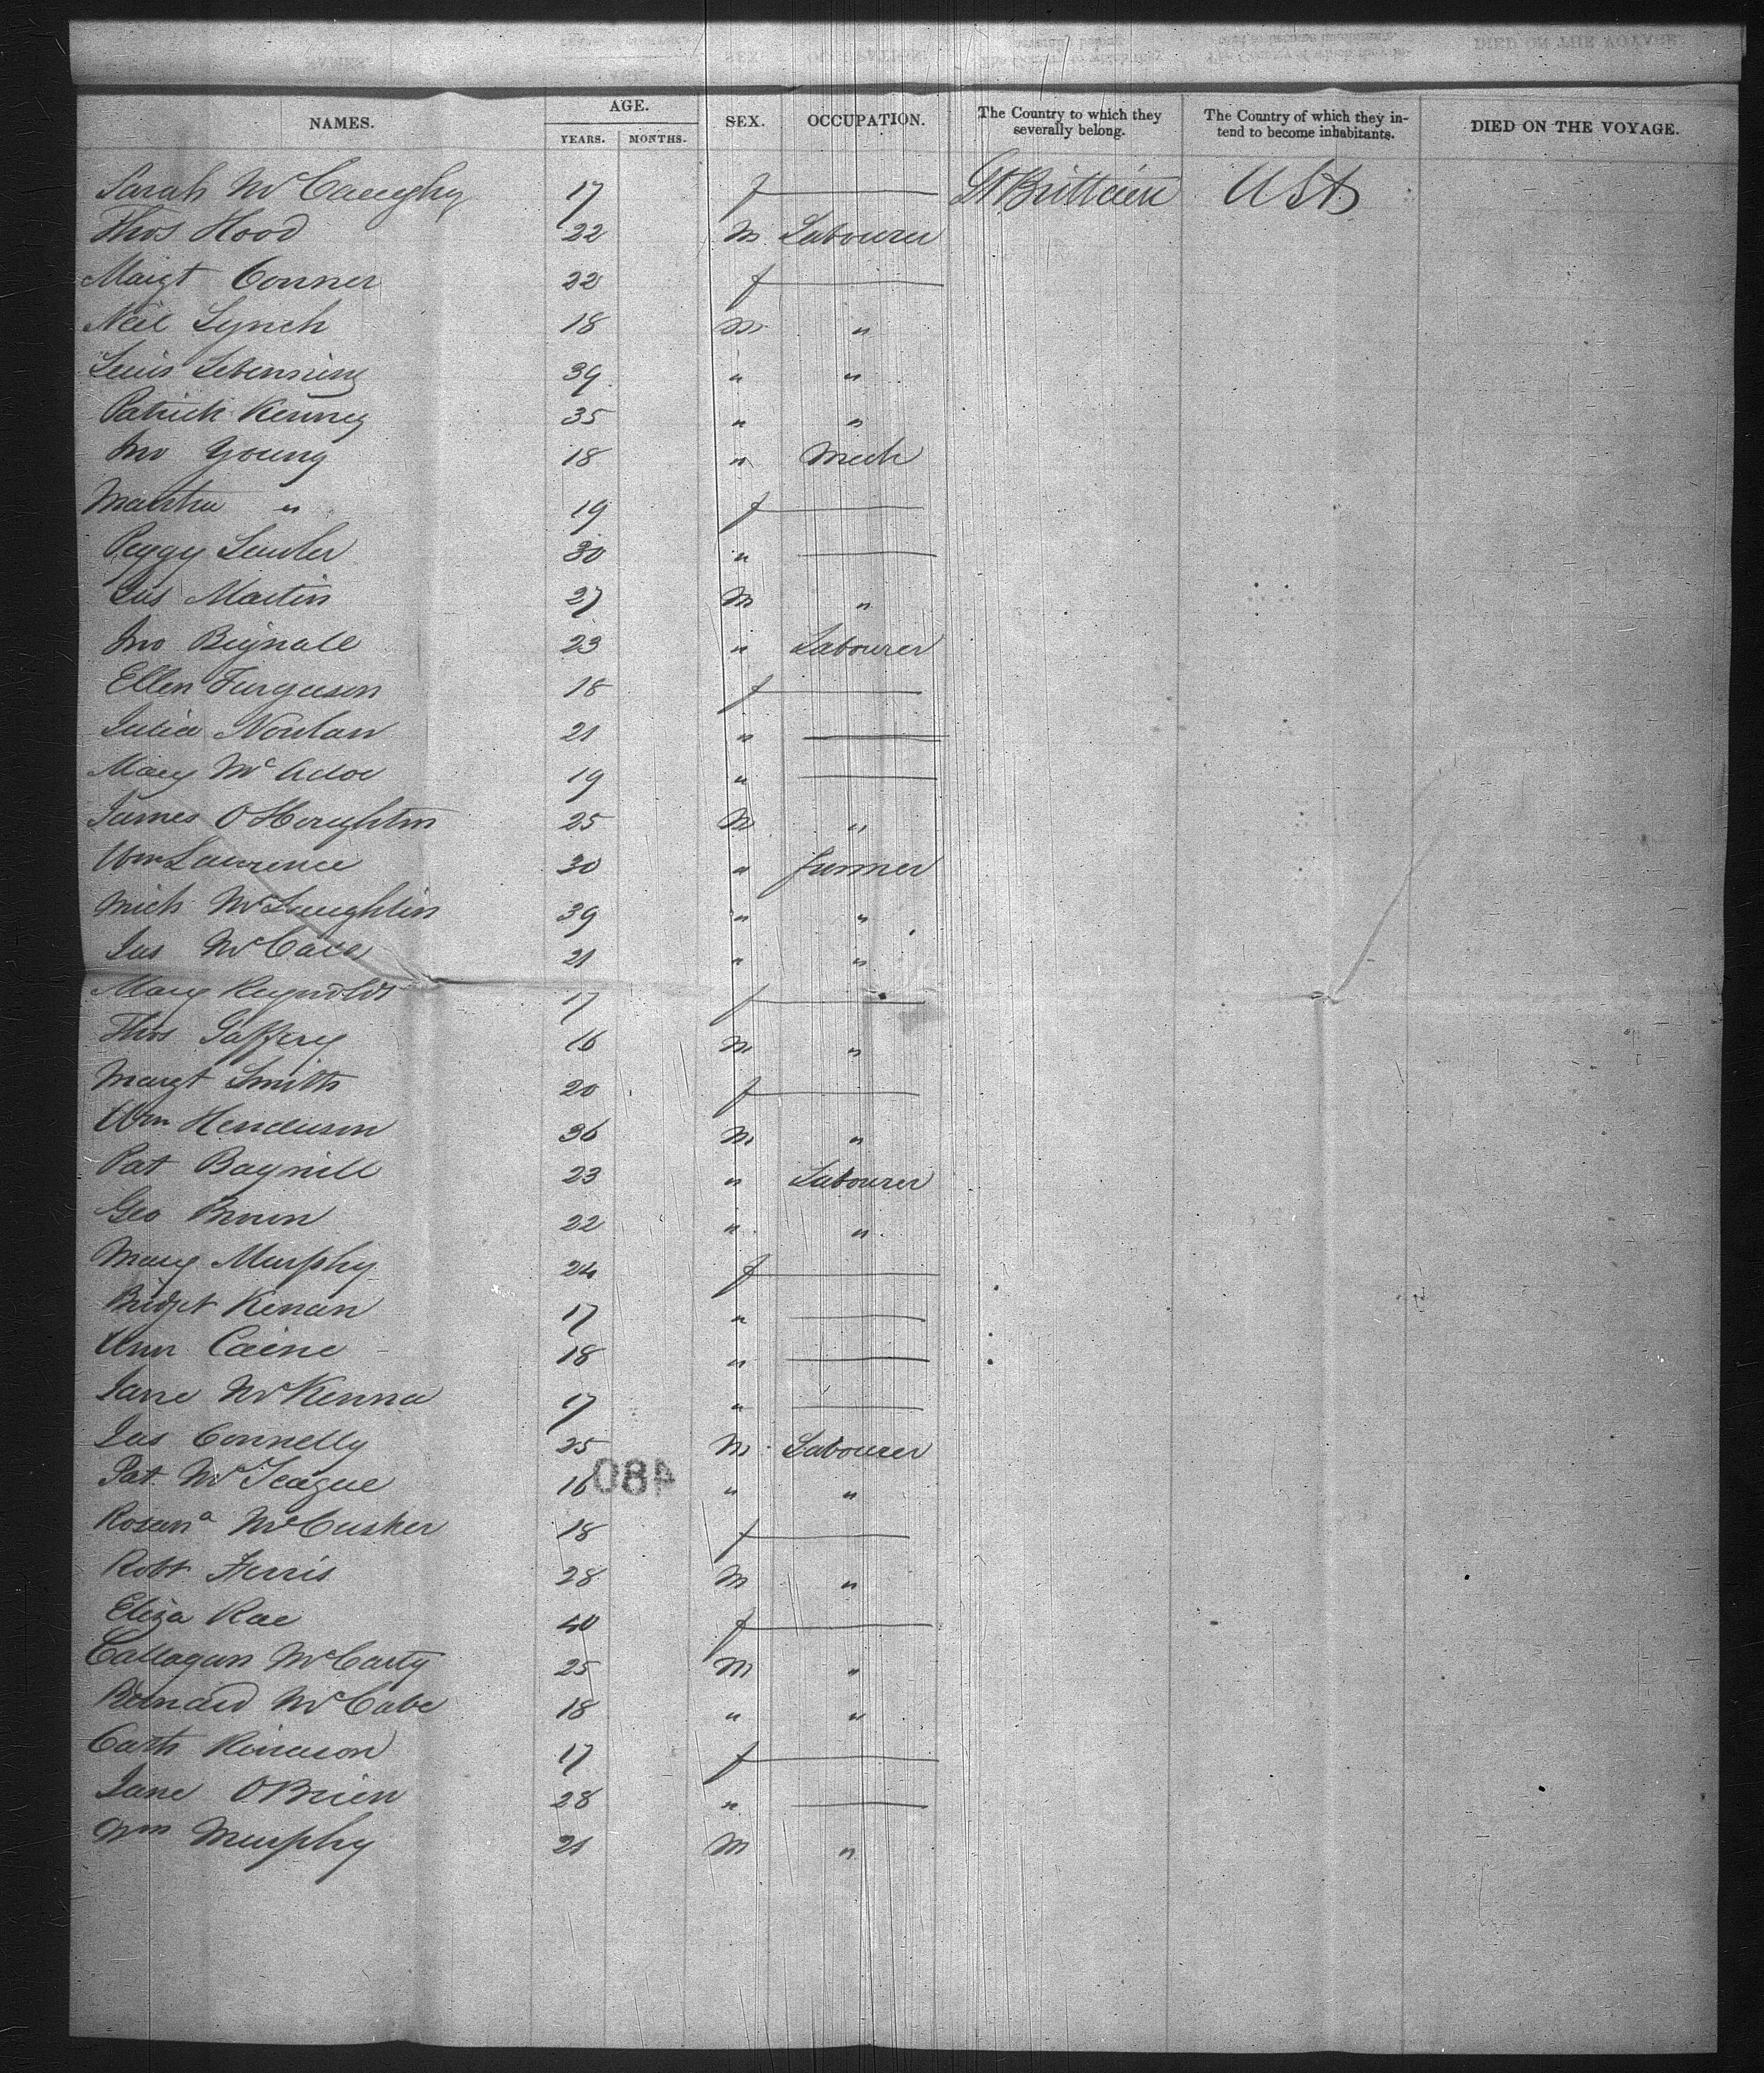 NAMES. AGE. YEARS. MONTHS. SEX. OCCUPATION. The Country to which they severally belong. The Country of which they intend to become inhabitants. DIED ON THE VOYAGE.
Sarah McCaughy 17 f Gt Brittain USA
Thos Hood 22 M Labourer
Margt Conner 22 f
Neil Lynch 18 M "
Lewis 39 " "
Patrick Kenney 35 " "
Jno Young 18 " Mech
Martha " 19 f
Peggy 30 "
Jas Martin 27 M "
Jno Bignall 23 " Labourer
Ellen Furguson 18 f
Julia Noulan 21 "
Mary McAdoe 19 "
James O'Houghton 25 M "
Wm Lawrence 30 " farmer
Mich McLaughlin 39 " "
Jas 21 " "
Mary Reynolds 17 f
Thos Gaffery 16 M "
Margt Smith 20 f
Wm Henderson 36 M "
Pat Bagnill 23 " Labourer
Geo Brown 22 " "
Mary Murphy 24 f
Bridget Kenan 17 "
Ann Caine 18 "
Jane McKenna 17 "
Jas Connelly 25 M Labourer
Pat McTeague 16 " "
480
Rosana McCusker 18 f
Robt Ferris 28 M "
Eliza Rae 40 f
Callagan McCarty 25 M "
Bernard McCabe 18 " "
Cath 17 f
Jane OBrien 28 "
Wm Murphy 21 M "